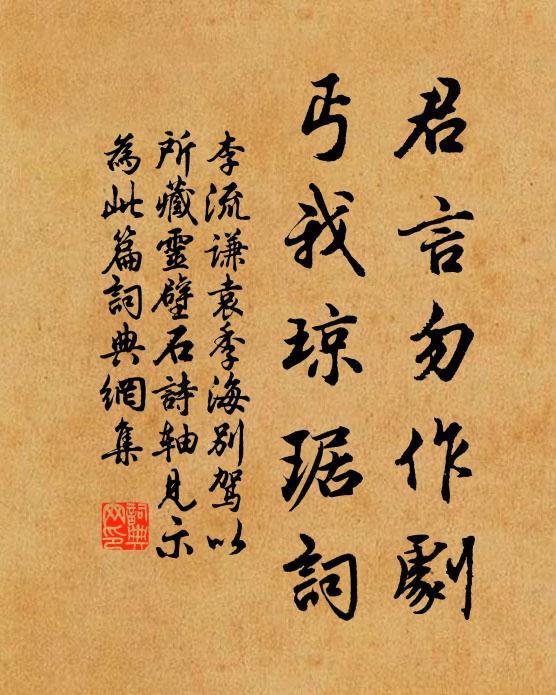 君言勿作劇
丐我琼琚詞
李流谦袁季海别駕以
所藏靈壁石詩軸見示
為此篇詞典網集
詞典
网印